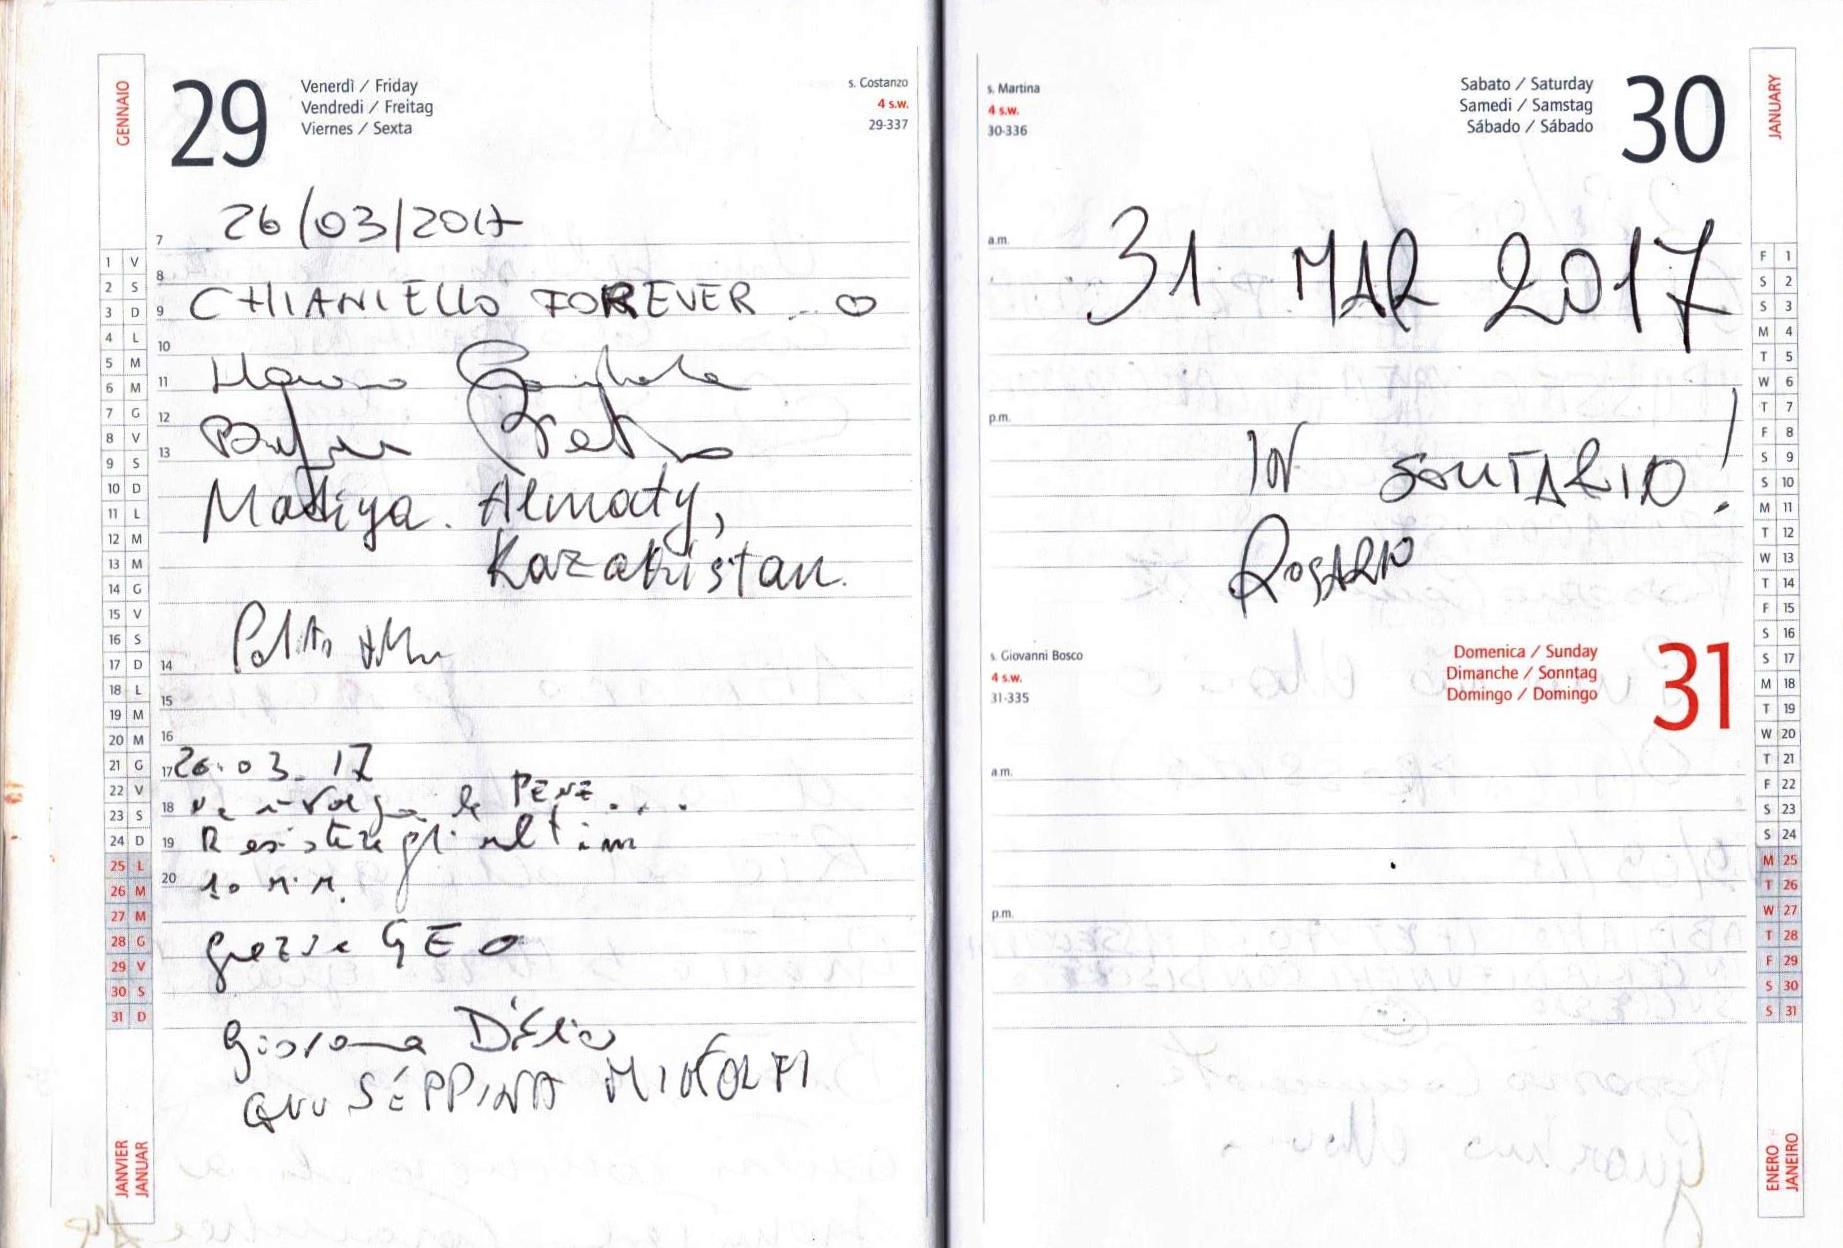 GENNAIO
29
Venerdì / Friday
Vendredi / Freitag
Viernes / Sexta
s. Costanzo
4 s.w.
29-337
26/03/2017
7
8
CHIANIELLO FOREVER ... O
9
10
11
12
13
Madiya. Almaty,
Kazakhistan.
14
15
16
26.03.17
17
Ne valga le PENE...
18
Resistere gli ultimi
19
10 min.
20
grazie GEO
Giovanna D'Elia
GIUSEPPINA
1 V
2 S
3 D
4 L
5 M
6 M
7 G
8 V
9 S
10 D
11 L
12 M
13 M
14 G
15 V
16 S
17 D
18 L
19 M
20 M
21 G
22 V
23 S
24 D
25 L
26 M
27 M
28 G
29 V
30 S
31 D
JANVIER
JANUAR
s. Martina
4 s.w.
30-336
Sabato / Saturday
Samedi / Samstag
Sábado / Sábado
30
JANUARY
a.m.
31 MAR 2017
p.m.
IN SOLITARIO!
ROSARIO
s. Giovanni Bosco
4 s.w.
31-335
Domenica / Sunday
Dimanche / Sonntag
Domingo / Domingo
31
a.m.
p.m.
F 1
S 2
S 3
M 4
T 5
W 6
T 7
F 8
S 9
S 10
M 11
T 12
W 13
T 14
F 15
S 16
S 17
M 18
T 19
W 20
T 21
F 22
S 23
S 24
M 25
T 26
W 27
T 28
F 29
S 30
S 31
ENERO
JANEIRO